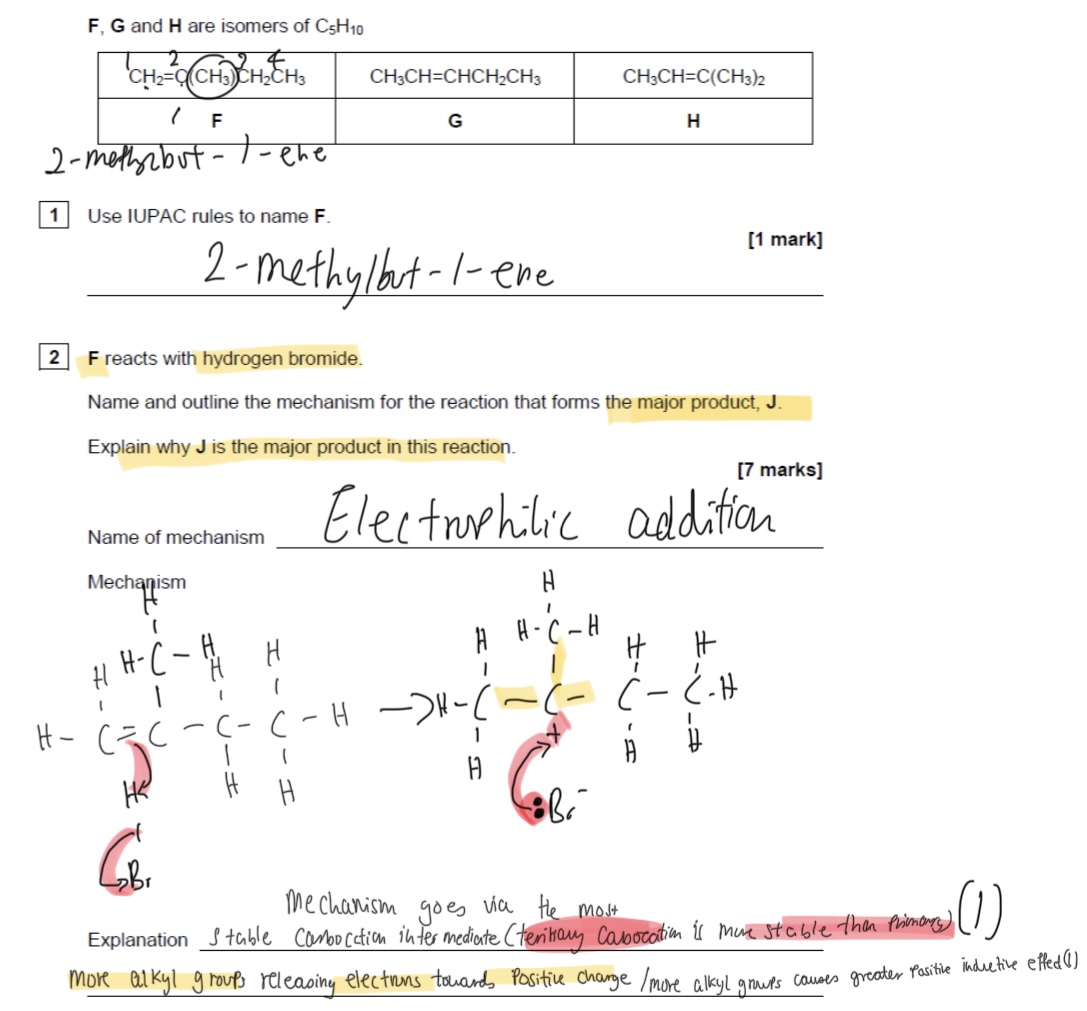 F, G and H are isomers of C5H10
1 2 3 4
CH2=C(CH3)CH2CH3 CH3CH=CHCH2CH3 CH3CH=C(CH3)2
F G H
2-methylbut-1-ene
1 Use IUPAC rules to name F.
[1 mark]
2-methylbut-1-ene
2 F reacts with hydrogen bromide.
Name and outline the mechanism for the reaction that forms the major product, J.
Explain why J is the major product in this reaction.
[7 marks]
Name of mechanism Electrophilic addition
Mechanism
H H
H H-C-H H H H H-C-H H H
H-C=C-C-C-H →H-C-C-C-C-H
H H H + H H
H :Br-
Br
Mechanism goes via the most
Explanation stable carbocation intermediate (tertiary carbocation is more stable than primary) (1)
more alkyl groups releasing electrons towards Positive charge /more alkyl groups causes greater positive inductive effect (1)